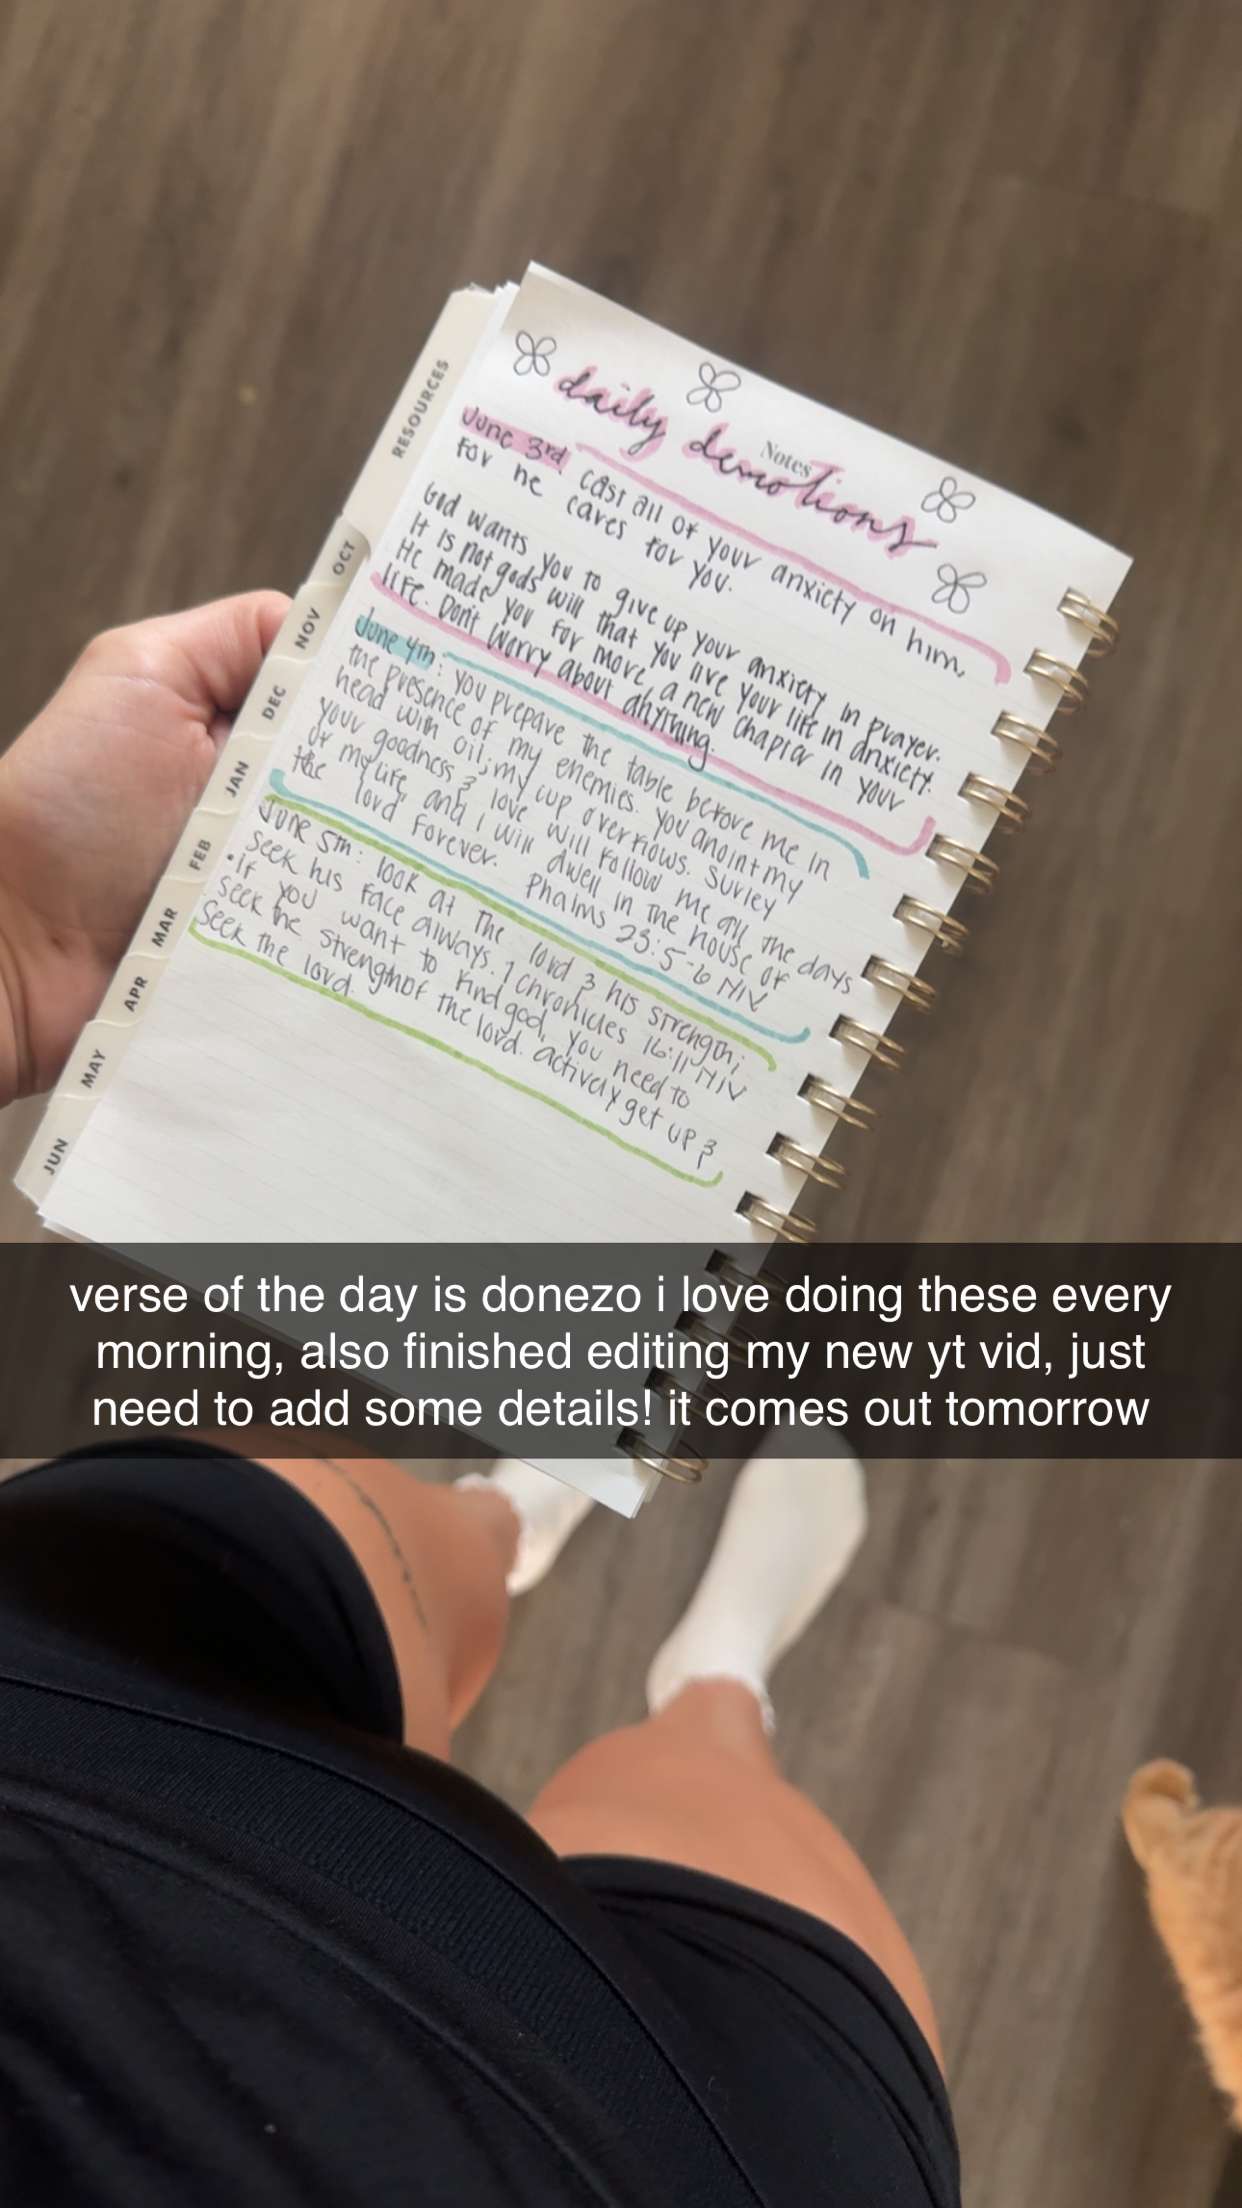 RESOURCES
OCT
NOV
DEC
JAN
FEB
MAR
APR
MAY
JUN
Notes
daily devotions
June 3rd cast all of your anxiety on him,
for he cares for you.
God wants you to give up your anxiety in prayer.
It is not gods will that you live your life in anxiety.
He made you for more, a new chapter in your
life. Don't worry about anything.
June 4th: you prepare the table before me in
the presence of my enemies. You anoint my
head with oil; my cup overflows. Surley
your goodness & love will follow me all the days
of my life, and I will dwell in the house of
the lord forever. Phalms 23:5-6 NIV
June 5th: look at the lord & his strength;
seek his face always. 1 chronicles 16:11 NIV
• If you want to find god, you need to
seek the strength of the lord. actively get up &
seek the lord.
verse of the day is donezo i love doing these every
morning, also finished editing my new yt vid, just
need to add some details! it comes out tomorrow